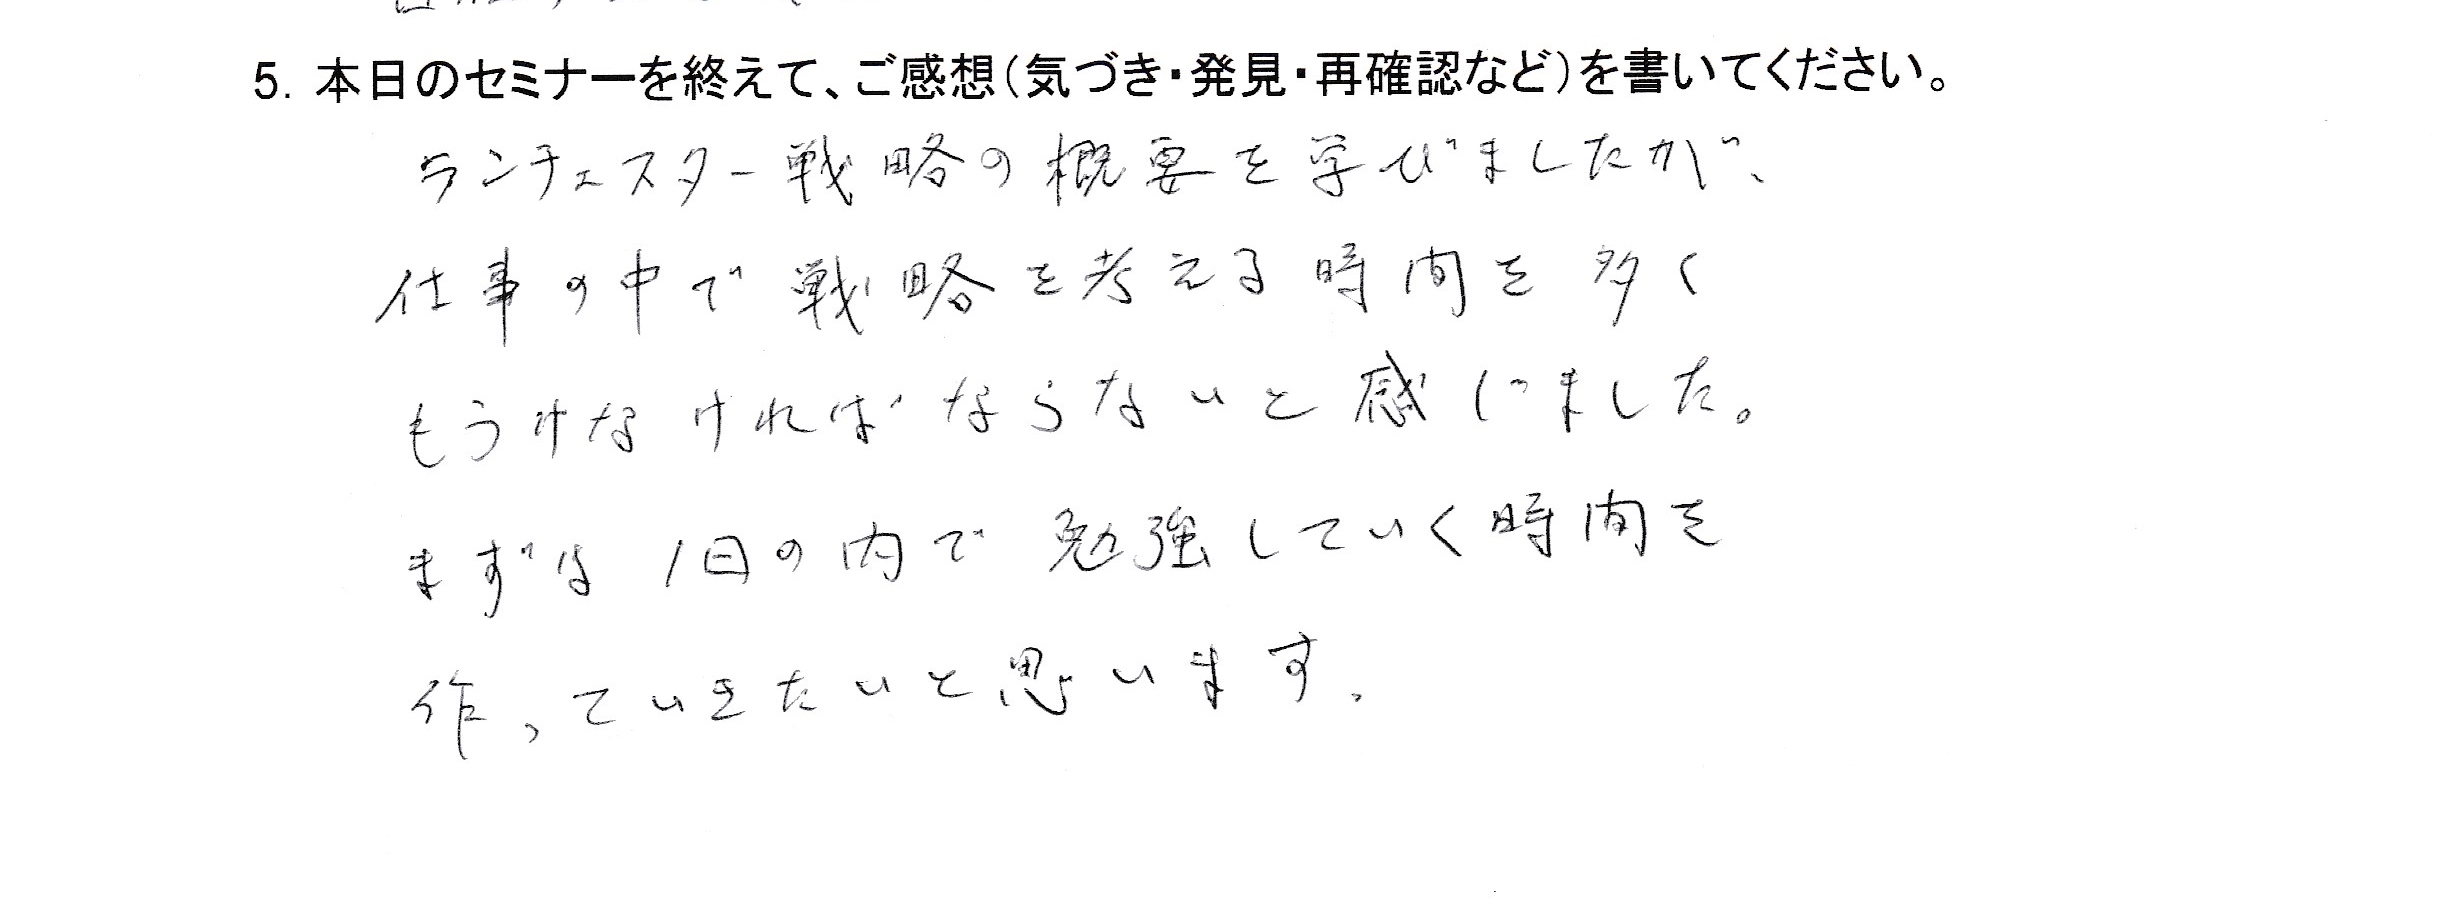 5. 本日のセミナーを終えて、ご感想(気づき・発見・再確認など)を書いてください。
ランチェスター戦略の概要を学びましたが、
仕事の中で戦略を考える時間を多く
もうけなければならないと感じました。
まずは1日の内で勉強していく時間を
作っていきたいと思います。